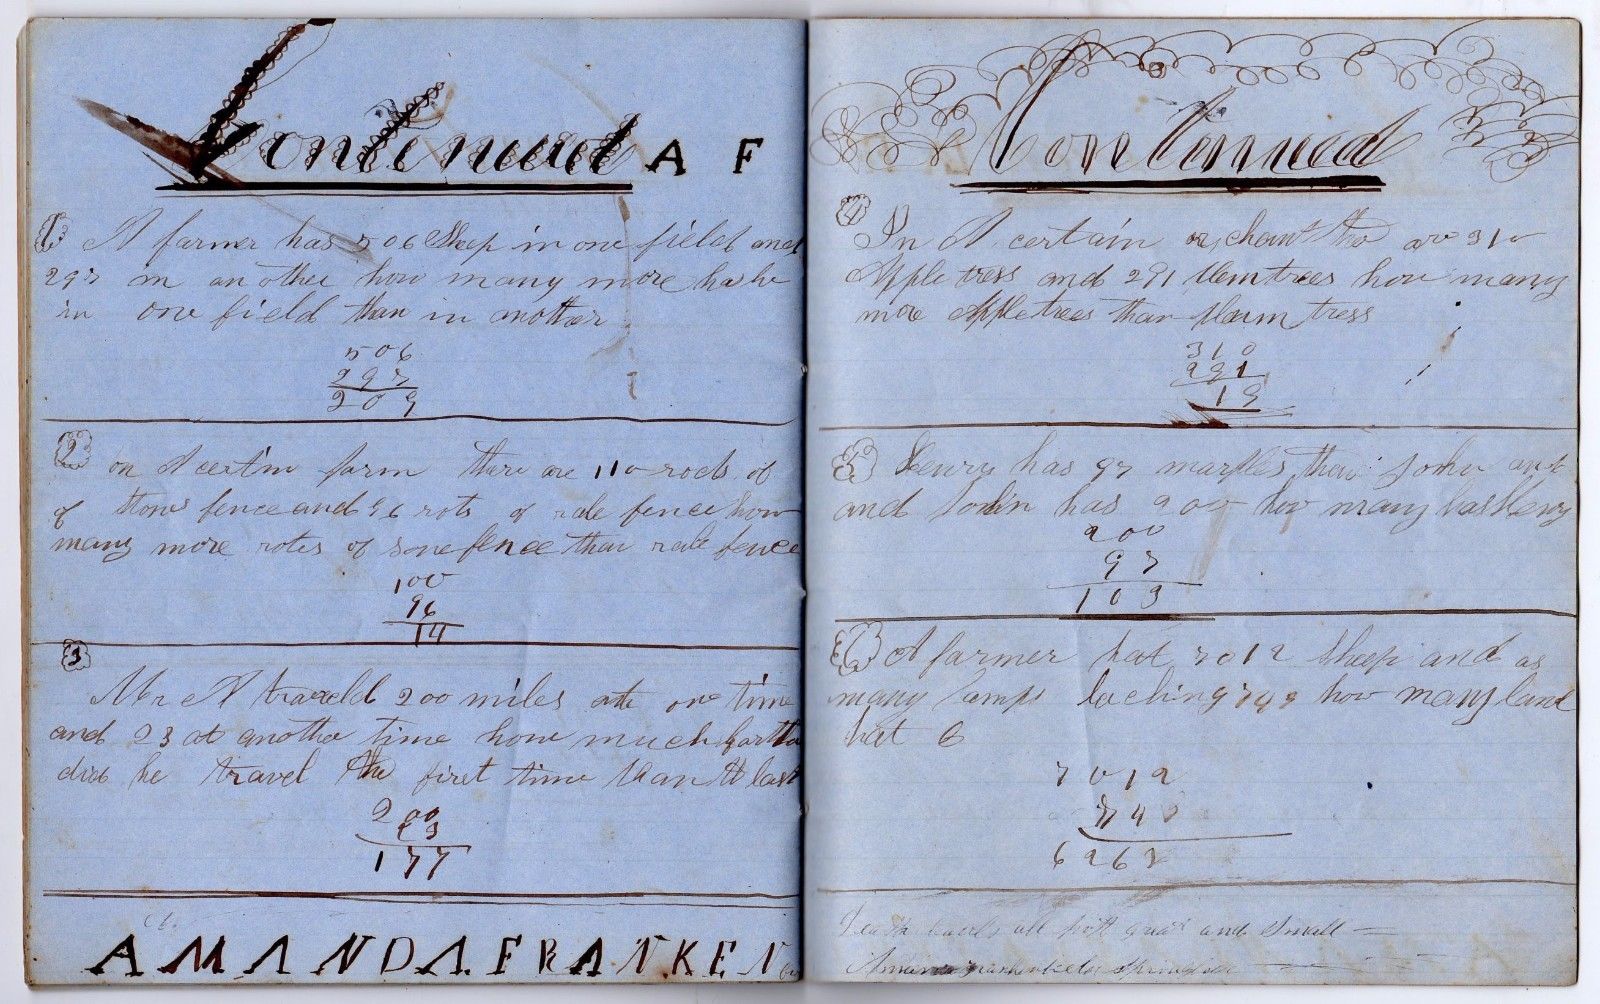 Continued A F
1 A farmer has 506 Sheep in one field and
297 in an other how many more has he
in one field than in another
506
297
209
2 on A certin farm there are 110 rods of
of stone fence and 96 rots of rale fence how
many more rotes of sone fence than rale fence
100
96
14
3
Mr A traveld 200 miles at on time
and 23 at another time how much farther
did he travel the first time than the last
200
23
177
AMANDA FRANKEN
Continued
4
In A certain orchant the are 310
Apple tress and 291 plem trees how many
more Apple trees than plum tress
310
291
19
5 Henry has 97 marples than John and
and John has 200 how many has Henry
200
97
103
6 A farmer hat 7012 Sheep and as
many lamps lacking 749 how many lam
hat 6
7012
749
6263
all both great and Small